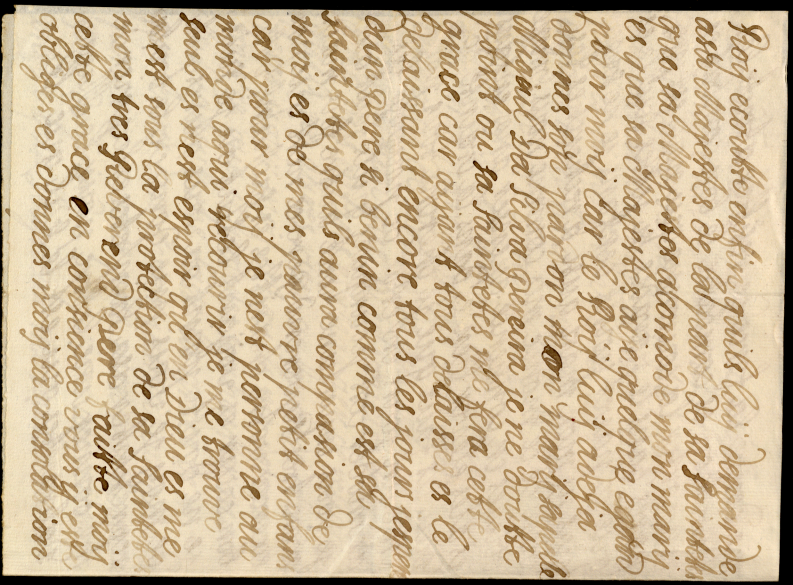 Roij ecoutte enfin quils luij demande
ast Majestes de la part de sa saintetes
que sa Majestes acomode mon marij
es que sa Majestes aije quelque egard
pour moij Car le Roij luij adeja
donnes son pardon mon marij
Miguil Da silva pereira je ne doutte
point ou sa saintetes me fera cette
grace car ayant tous delaisses es le
delaissant encore tous les jours
dun pere si benin comme est sa
saintetes quils aura compasion de
moij es de mes pauvre petit enfan
car pour moij je neij personne au
monde aqui recourir je me trouve
seul es rest espoir qu en Dieu es me
mest sous la protection de sa saintete
mon tres Reverend pere faitte moij
cette grace en consience vous ij est
obliger es donnes moij la consolation